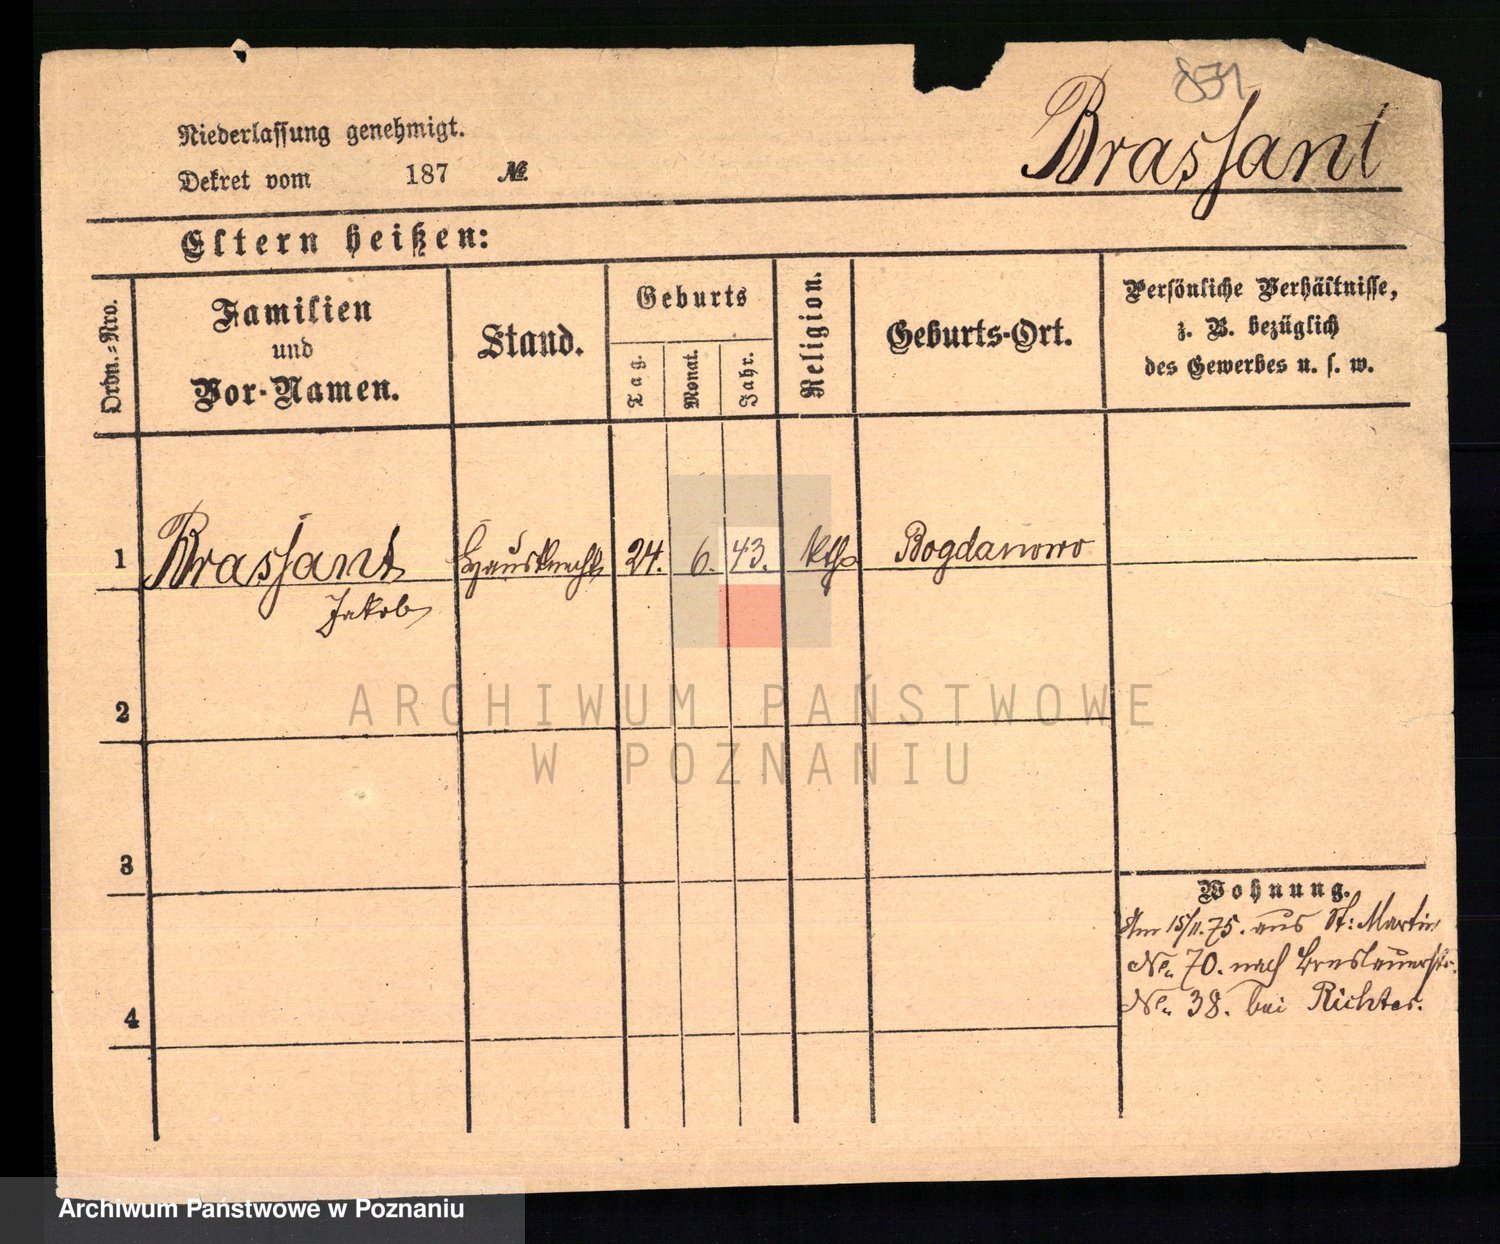 831
Brassant
Niederlassung genehmigt.
Dekret vom 187 №
Eltern heißen:
Ordn.-Nro.
Familien
und
Vor-Namen.
Stand.
Geburts
Tag.
Monat.
Jahr.
Religion.
Geburts-Ort.
Persönliche Verhältnisse,
z. B. bezüglich
des Gewerbes u. s. w.
1 Brassant Hausknecht 24. 6. 43. kth Bogdanowo
Jakob
2
3
4
Wohnung.
Am 15/11. 75. aus St: Martin
No. 70. nach Breslauerstr.
No. 38. bei Richter.
ARCHIWUM PAŃSTWOWE
W POZNANIU
Archiwum Państwowe w Poznaniu